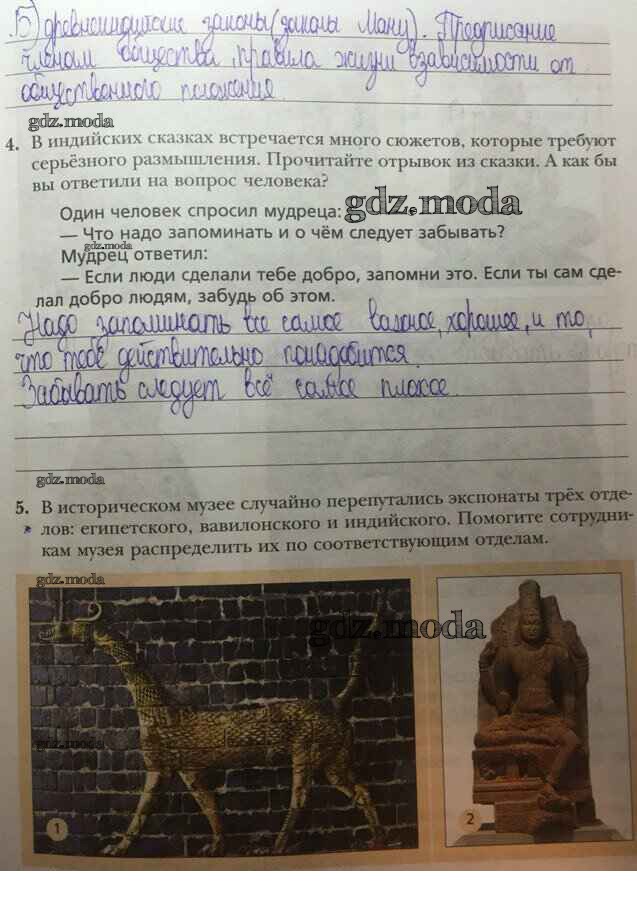 Б) древнеиндийские законы (законы Ману). Предписание
членам общества, правила жизни в зависимости от
общественного положения.
gdz.moda
4. В индийских сказках встречается много сюжетов, которые требуют
серьёзного размышления. Прочитайте отрывок из сказки. А как бы
вы ответили на вопрос человека?
Один человек спросил мудреца: gdz.moda
— Что надо запоминать и о чём следует забывать?
gdz.moda
Мудрец ответил:
— Если люди сделали тебе добро, запомни это. Если ты сам сде-
лал добро людям, забудь об этом.
Надо запоминать всё самое важное, хорошее, и то,
что тебе действительно понадобится.
Забывать следует всё самое плохое.
gdz.moda
5. В историческом музее случайно перепутались экспонаты трёх отде-
* лов: египетского, вавилонского и индийского. Помогите сотрудни-
кам музея распределить их по соответствующим отделам.
gdz.moda
gdz.moda
gdz.moda
1
2